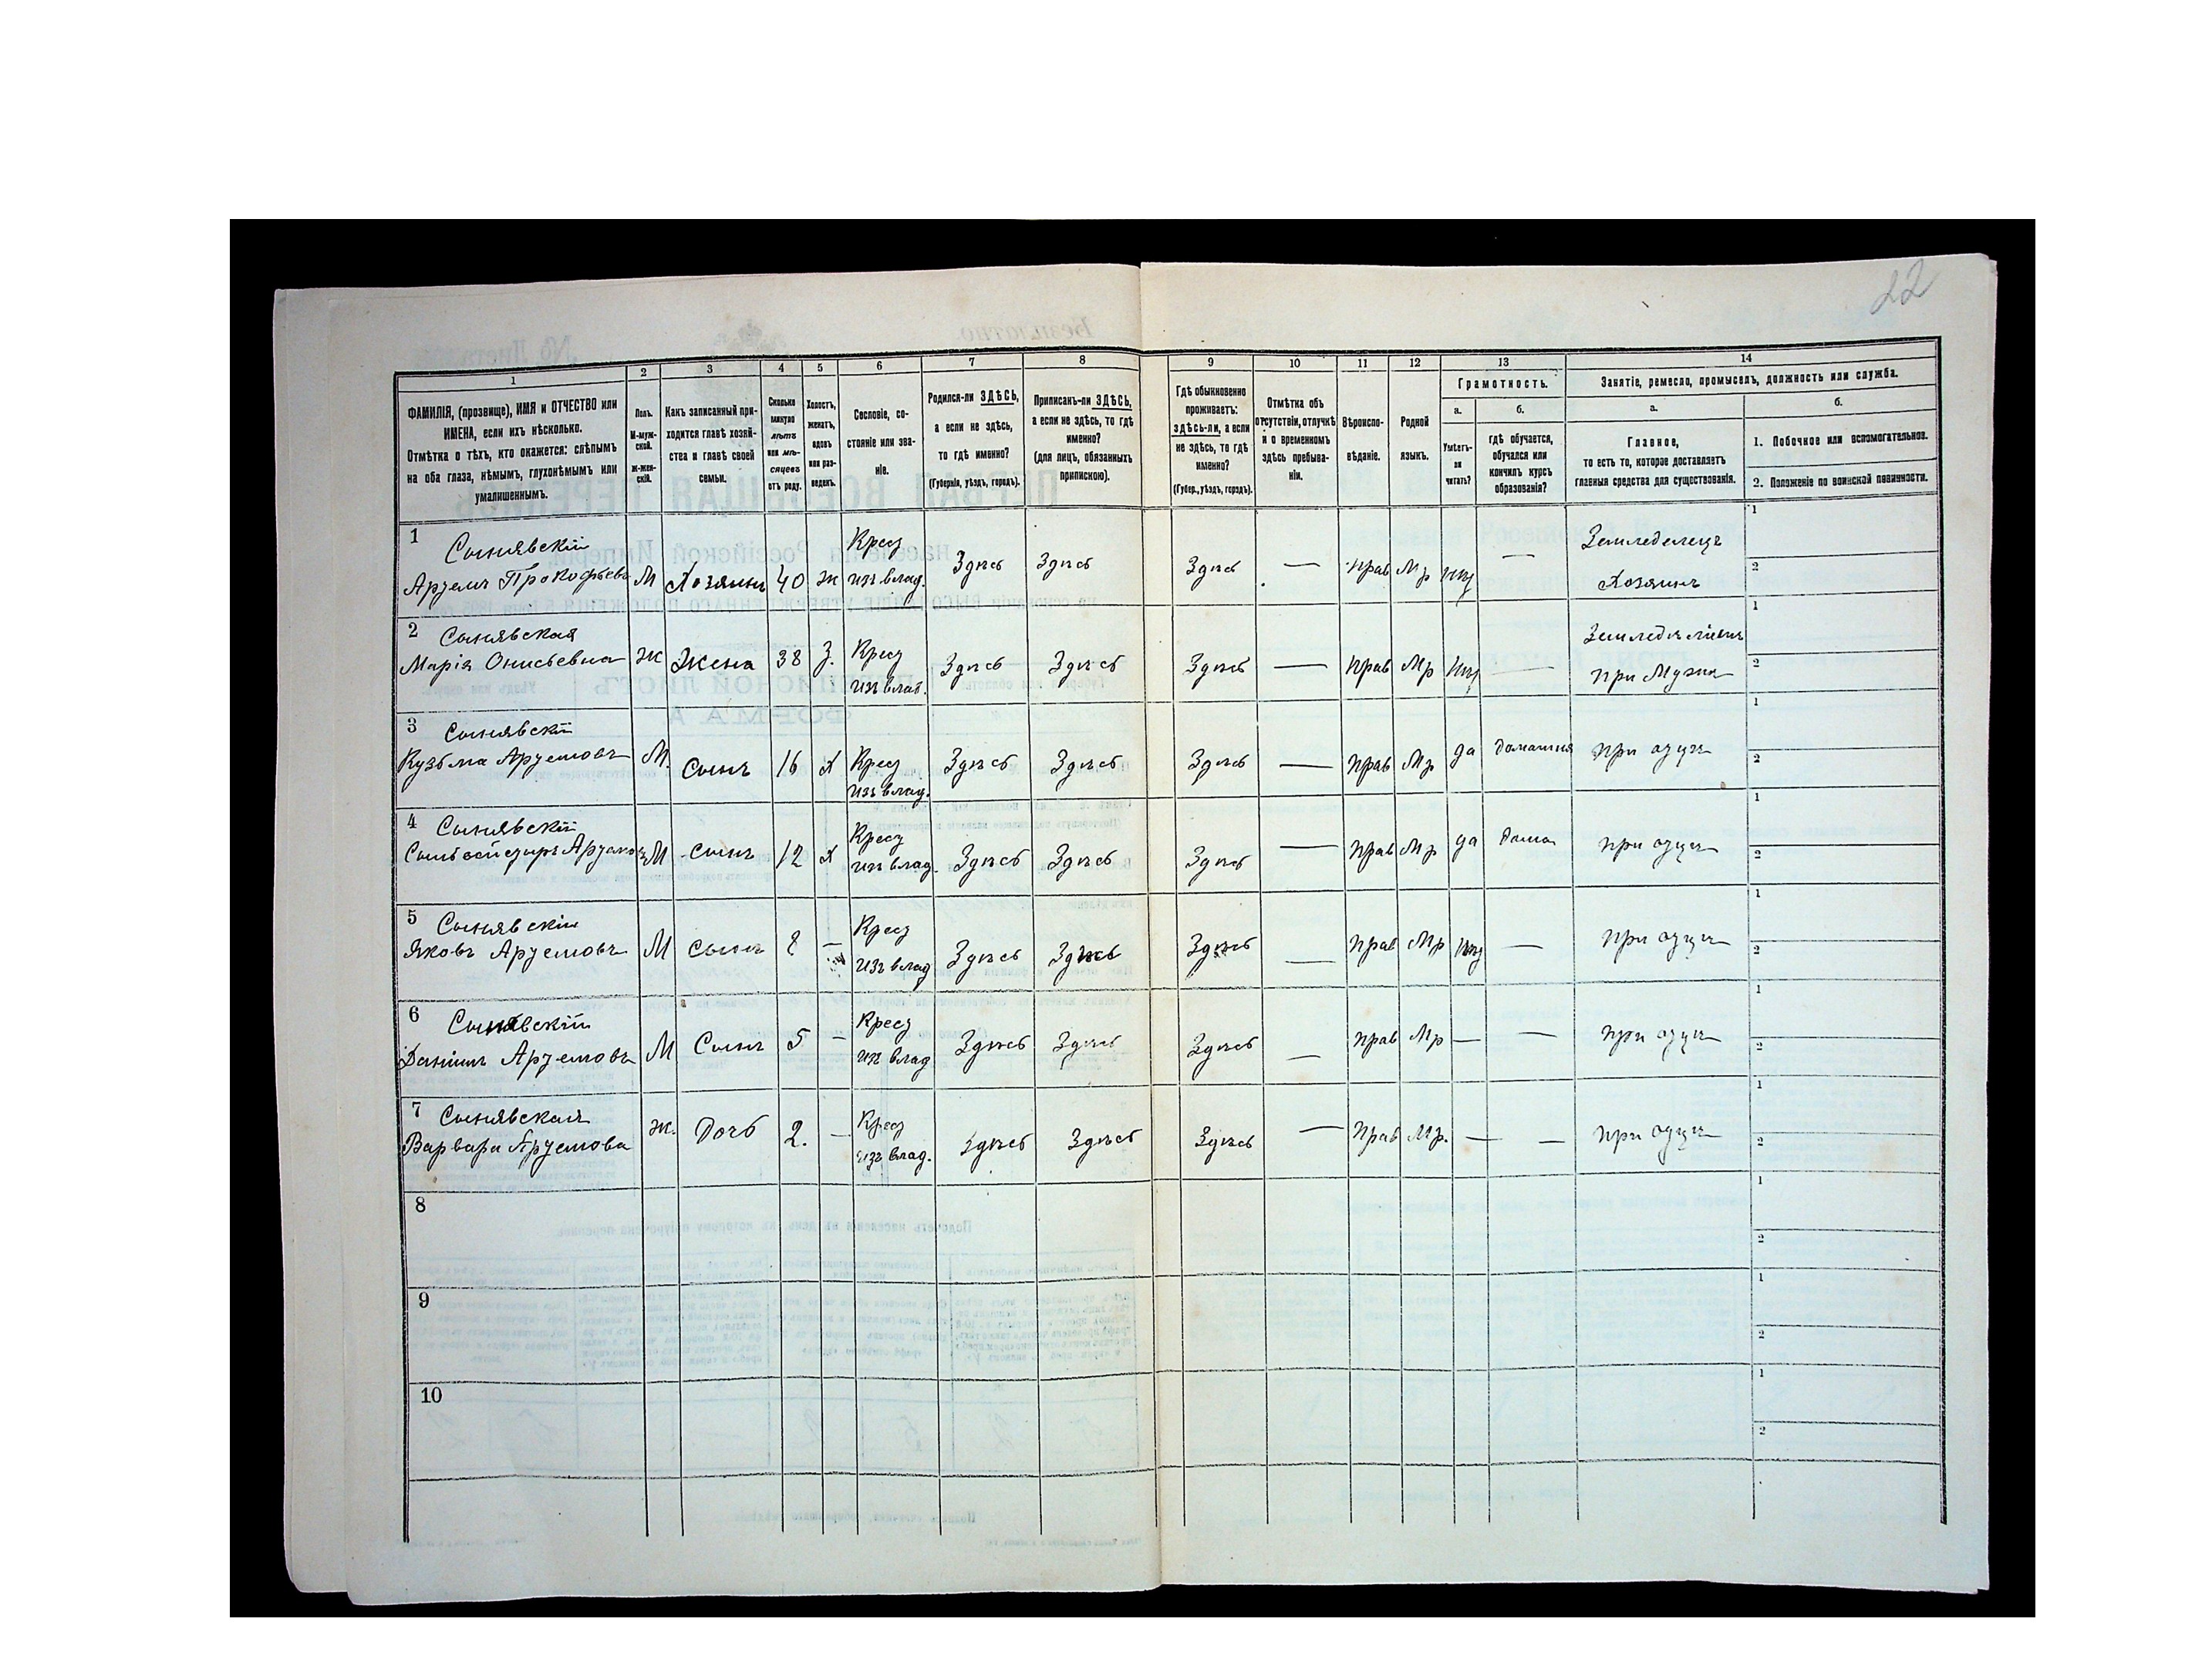 22
1
2
3
4
5
6
7
8
9
10
11
12
13
14
ФАМИЛІЯ, (прозвище), ИМЯ и ОТЧЕСТВО или
ИМЕНА, если ихъ нѣсколько.
Отмѣтка о тѣхъ, кто окажется: слѣпымъ
на оба глаза, нѣмымъ, глухонѣмымъ или
умалишеннымъ.
Полъ.
М-муж-
ской.
Ж-жен-
скій.
Какъ записанный при-
ходится главѣ хозяй-
ства и главѣ своей
семьи.
Сколько
минуло
лѣтъ
или мѣ-
сяцевъ
отъ роду.
Холостъ,
женатъ,
вдовъ
или раз-
веденъ.
Сословіе, со-
стояніе или зва-
ніе.
Родился-ли ЗДѢСЬ,
а если не здѣсь,
то гдѣ именно?
(Губернія, уѣздъ, городъ).
Приписанъ-ли ЗДѢСЬ,
а если не здѣсь, то гдѣ
именно?
(для лицъ, обязанныхъ
припискою).
Гдѣ обыкновенно
проживаетъ:
здѣсь-ли, а если
не здѣсь, то гдѣ
именно?
(Губер., уѣздъ, городъ).
Отмѣтка объ
отсутствіи, отлучкѣ
и о временномъ
здѣсь пребыва-
ніи.
Вѣроиспо-
вѣданіе.
Родной
языкъ.
Грамотность.
а.
Умѣетъ-
ли
читать?
б.
гдѣ обучается,
обучался или
кончилъ курсъ
образованія?
Занятіе, ремесло, промыселъ, должность или служба.
а.
Главное,
то есть то, которое доставляетъ
главныя средства для существованія.
б.
1. Побочное или вспомогательное.
2. Положеніе по воинской повинности.
1 Сынявскій Крест Земледелецъ 1
Артемъ Прокофьевъ М Хозяинъ 40 ж изъ влад. Здѣсь Здѣсь Здѣсь — прав Мр нѣт — Хозяинъ 2
2 Сынявская Крест Земледѣліемъ 1
Марія Онисьевна Ж Жена 38 З. изъ влад. Здѣсь Здѣсь Здѣсь — прав Мр нѣт — при Мужѣ 2
3 Сынявскій Крест 1
Кузьма Артемовъ М Сынъ 16 Х изъ влад. Здѣсь Здѣсь Здѣсь — прав Мр да домашня при отцѣ 2
4 Сынявскій Крест 1
М сынъ 12 Х изъ влад. Здѣсь Здѣсь Здѣсь — прав Мр да дома при отцѣ 2
5 Сынявскій Крест 1
Яковъ Артемовъ М сынъ 8 — изъ влад Здѣсь Здѣсь Здѣсь — прав Мр нѣт — при отцѣ 2
6 Сынявскій Крест 1
Даніилъ Артемовъ М Сынъ 5 — изъ влад Здѣсь Здѣсь Здѣсь — прав Мр — — при отцѣ 2
7 Сынявская Крест 1
Варвара Артемова Ж. Дочь 2. — изъ влад. Здѣсь Здѣсь Здѣсь — Прав Мр. — — при отцѣ 2
8 1
2
9 1
2
10 1
2